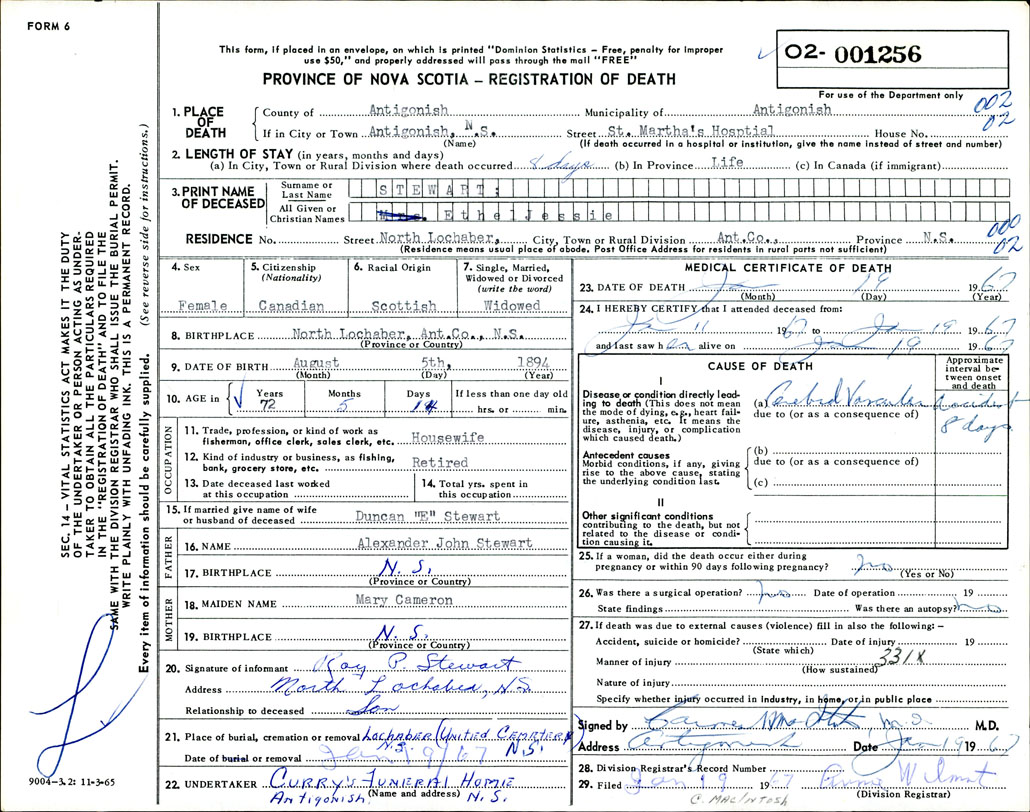 FORM 6
This form, if placed in an envelope, on which is printed "Dominion Statistics – Free, penalty for improper
use $50," and properly addressed will pass through the mail "FREE"
PROVINCE OF NOVA SCOTIA – REGISTRATION OF DEATH
O2- 001256
For use of the Department only
002
02
1. PLACE OF DEATH
County of Antigonish Municipality of Antigonish
If in City or Town Antigonish, N.S. Street St. Martha's Hosptial House No.
(Name) (If death occurred in a hospital or institution, give the name instead of street and number)
2. LENGTH OF STAY (in years, months and days)
(a) In City, Town or Rural Division where death occurred 8 days (b) In Province Life (c) In Canada (if immigrant)
3. PRINT NAME OF DECEASED
Surname or Last Name STEWART;
All Given or Christian Names Mrs. Ethel Jessie
000
02
RESIDENCE No. Street North Lochaber, City, Town or Rural Division Ant.Co., Province N.S.
(Residence means usual place of abode. Post Office Address for residents in rural parts not sufficient)
4. Sex Female
5. Citizenship (Nationality) Canadian
6. Racial Origin Scottish
7. Single, Married, Widowed or Divorced (write the word) Widowed
8. BIRTHPLACE North Lochaber, Ant.Co., N.S.
(Province or Country)
9. DATE OF BIRTH August 5th, 1894
(Month) (Day) (Year)
10. AGE in Years 72 Months 5 Days 14 If less than one day old hrs. or min.
OCCUPATION
11. Trade, profession, or kind of work as fisherman, office clerk, sales clerk, etc. Housewife
12. Kind of industry or business, as fishing, bank, grocery store, etc. Retired
13. Date deceased last worked at this occupation
14. Total yrs. spent in this occupation
15. If married give name of wife or husband of deceased Duncan "E" Stewart
FATHER
16. NAME Alexander John Stewart
17. BIRTHPLACE N.S.
(Province or Country)
MOTHER
18. MAIDEN NAME Mary Cameron
19. BIRTHPLACE N.S.
(Province or Country)
20. Signature of informant Roy P. Stewart
Address North Lochaber, N.S.
Relationship to deceased Son
21. Place of burial, cremation or removal Lochaber (United Cemetery) N.S. N.S.
Date of burial or removal Jan 19/67
22. UNDERTAKER Curry's Funeral Home
Antigonish. (Name and address) N.S.
MEDICAL CERTIFICATE OF DEATH
23. DATE OF DEATH Jan 19 1967
(Month) (Day) (Year)
24. I HEREBY CERTIFY that I attended deceased from:
Jan 11 1967 to Jan 19 1967
and last saw her alive on Jan 19 1967
CAUSE OF DEATH
Approximate interval between onset and death
I
Disease or condition directly leading to death (This does not mean the mode of dying, e.g., heart failure, asthenia, etc. It means the disease, injury, or complication which caused death.)
(a) Cerebral Vascular Accident
due to (or as a consequence of) 8 days
Antecedent causes
Morbid conditions, if any, giving rise to the above cause, stating the underlying condition last.
(b)
due to (or as a consequence of)
(c)
II
Other significant conditions
contributing to the death, but not related to the disease or condition causing it.
25. If a woman, did the death occur either during pregnancy or within 90 days following pregnancy? no
(Yes or No)
26. Was there a surgical operation? no Date of operation 19
State findings Was there an autopsy? no
27. If death was due to external causes (violence) fill in also the following: –
Accident, suicide or homicide? Date of injury 19
(State which)
Manner of injury 331X
(How sustained)
Nature of injury
Specify whether injury occurred in Industry, in home, or in public place
Signed by M.D. M.D.
Address Antigonish Date Jan 19 1967
28. Division Registrar's Record Number
29. Filed Jan 19 1967
(Division Registrar)
C. MacIntosh
SEC. 14 – VITAL STATISTICS ACT MAKES IT THE DUTY
OF THE UNDERTAKER OR PERSON ACTING AS UNDER-
TAKER TO OBTAIN ALL THE PARTICULARS REQUIRED
IN THE "REGISTRATION OF DEATH" AND TO FILE THE
SAME WITH THE DIVISION REGISTRAR WHO SHALL ISSUE THE BURIAL PERMIT.
WRITE PLAINLY WITH UNFADING INK. THIS IS A PERMANENT RECORD.
Every item of information should be carefully supplied. (See reverse side for instructions.)
9004-3.2: 11-3-65